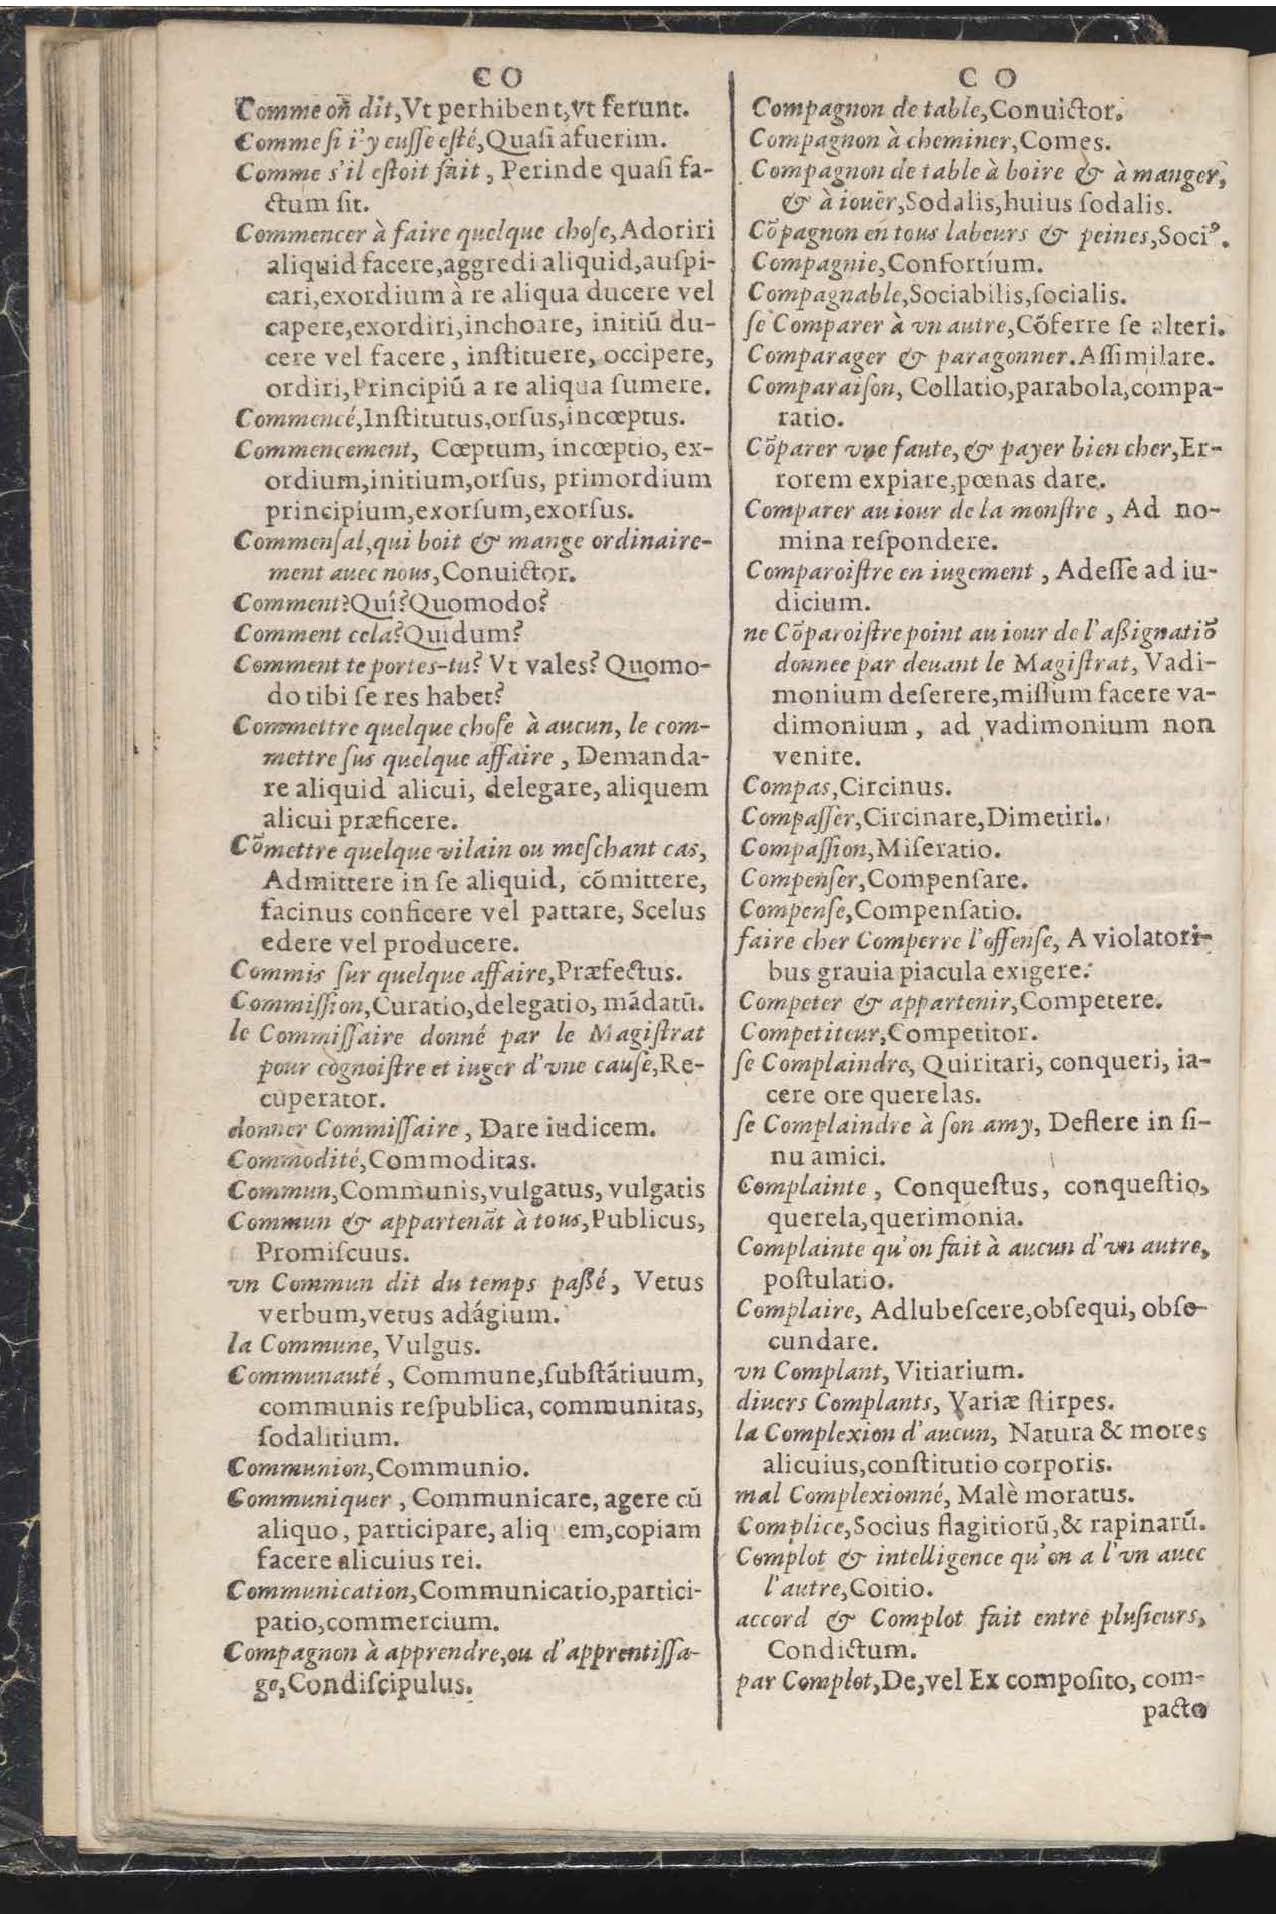 CO
Comme oñ dit,Vt perhibent,vt ferunt.
Comme ſi i'y euſſe eſté,Quaſi afuerim.
Comme s'il eſtoit fait , Perinde quaſi fa-
ctum ſit.
Commencer à faire quelque choſe,Adoriri
aliquid facere,aggredi aliquid,auſpi-
cari,exordium à re aliqua ducere vel
capere,exordiri,inchoare, initiū du-
cere vel facere , inſtituere, occipere,
ordiri,Principiū a re aliqua ſumere.
Commencé,Inſtitutus,orſus,incœptus.
Commencement, Cœptum, incœptio, ex-
ordium,initium,orſus, primordium
principium,exorſum,exorſus.
Commenſal,qui boit & mange ordinaire-
ment auec nous,Conuictor.
Comment?Quî?Quomodo?
Comment cela?Quidum?
Comment te portes-tu? Vt vales? Quomo-
do tibi ſe res habet?
Commettre quelque choſe à aucun, le com-
mettre ſus quelque affaire , Demanda-
re aliquid alicui, delegare, aliquem
alicui præficere.
Cõmettre quelque vilain ou meſchant cas,
Admittere in ſe aliquid, cõmittere,
facinus conficere vel pattare, Scelus
edere vel producere.
Commis ſur quelque affaire,Præfectus.
Commiſſion,Curatio,delegatio, mãdatū.
le Commiſſaire donné par le Magiſtrat
pour cognoiſtre et iuger d'vne cauſe,Re-
cuperator.
donner Commiſſaire , Dare iudicem.
Commodité,Commoditas.
Commun,Communis,vulgatus, vulgatis
Commun & appartenãt à tous,Publicus,
Promiſcuus.
vn Commun dit du temps paßé , Vetus
verbum,vetus adágium.
la Commune, Vulgus.
Communauté , Commune,ſubſtãtiuum,
communis reſpublica, communitas,
ſodalitium.
Communion,Communio.
Communiquer , Communicare, agere cū
aliquo , participare, aliq em,copiam
facere alicuius rei.
Communication,Communicatio,partici-
patio,commercium.
Compagnon à apprendre,ou d'apprentiſſa-
ge,Condiſcipulus.
CO
Compagnon de table,Conuictor.
Compagnon à cheminer,Comes.
Compagnon de table à boire & à manger,
& à iouër,Sodalis,huius ſodalis.
Cõpagnon en tous labeurs & peines,Sociꝰ.
Compagnie,Conſortíum.
Compagnable,Sociabilis,ſocialis.
ſe Comparer à vn autre,Cõferre ſe alteri.
Comparager & paragonner.Aſſimilare.
Comparaiſon, Collatio,parabola,compa-
ratio.
Cõparer vne faute, & payer bien cher,Er-
rorem expiare,pœnas dare.
Comparer au iour de la monſtre , Ad no-
mina reſpondere.
Comparoiſtre en iugement , Adeſſe ad iu-
dicium.
ne Cõparoiſtre point au iour de l'aßignatiõ
donnee par deuant le Magiſtrat, Vadi-
monium deſerere,miſſum facere va-
dimonium , ad vadimonium non
venire.
Compas,Circinus.
Compaſſer,Circinare,Dimetiri.
Compaſſion,Miſeratio.
Compenſer,Compenſare.
Compenſe,Compenſatio.
faire cher Comperre l'offenſe, A violatori-
bus grauia piacula exigere.
Competer & appartenir,Competere.
Competiteur,Competitor.
ſe Complaindre, Quiritari, conqueri, ia-
cere ore querelas.
ſe Complaindre à ſon amy, Deflere in ſi-
nu amici.
Complainte , Conqueſtus, conqueſtio,
querela,querimonia.
Complainte qu'on fait à aucun d'vn autre,
poſtulatio.
Complaire, Adlubeſcere,obſequi, obſe-
cundare.
vn Complant, Vitiarium.
diuers Complants, Variæ ſtirpes.
la Complexion d'aucun, Natura & mores
alicuius,conſtitutio corporis.
mal Complexionné, Malè moratus.
Complice,Socius flagitiorū,& rapinarū.
Complot & intelligence qu'on a l'vn auec
l'autre,Coitio.
accord & Complot fait entre pluſieurs,
Condictum.
par Complot,De,vel Ex compoſito, com-
pacto